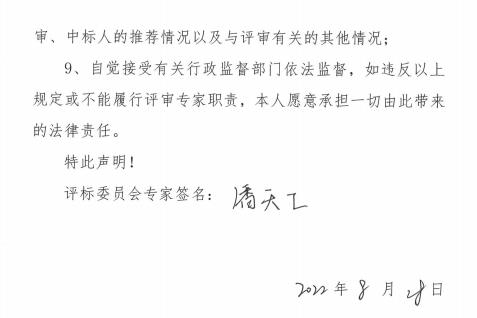 审、中标人的推荐情况以及与评审有关的其他情况；
9、自觉接受有关行政监督部门依法监督，如违反以上
规定或不能履行评审专家职责，本人愿意承担一切由此带来
的法律责任。
特此声明！
评标委员会专家签名：潘天工
2022 年 8 月 28 日